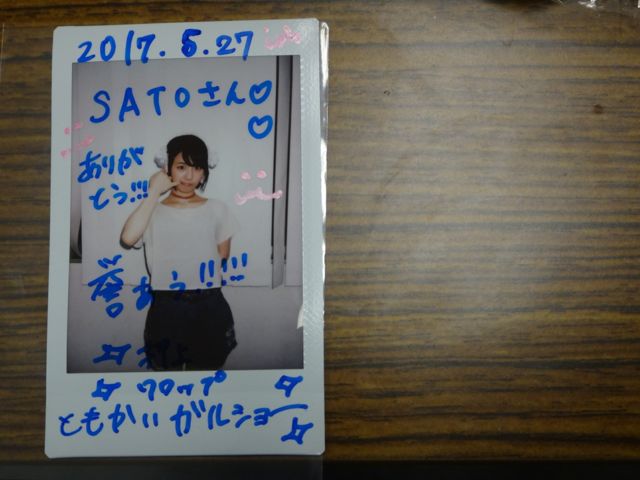 2017.5.27
SATOさん♡
♡
ありが
とう!!!
誉あう!!!!!
クロップ
ともかいガルショー